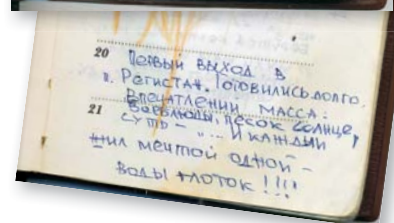 20 Первый выход в
п. Регистан. Готовились долго.
Впечатлений масса:
21 Верблюды, песок солнце,
суть – "... И каждый
жил мечтой одной –
воды глоток !!!